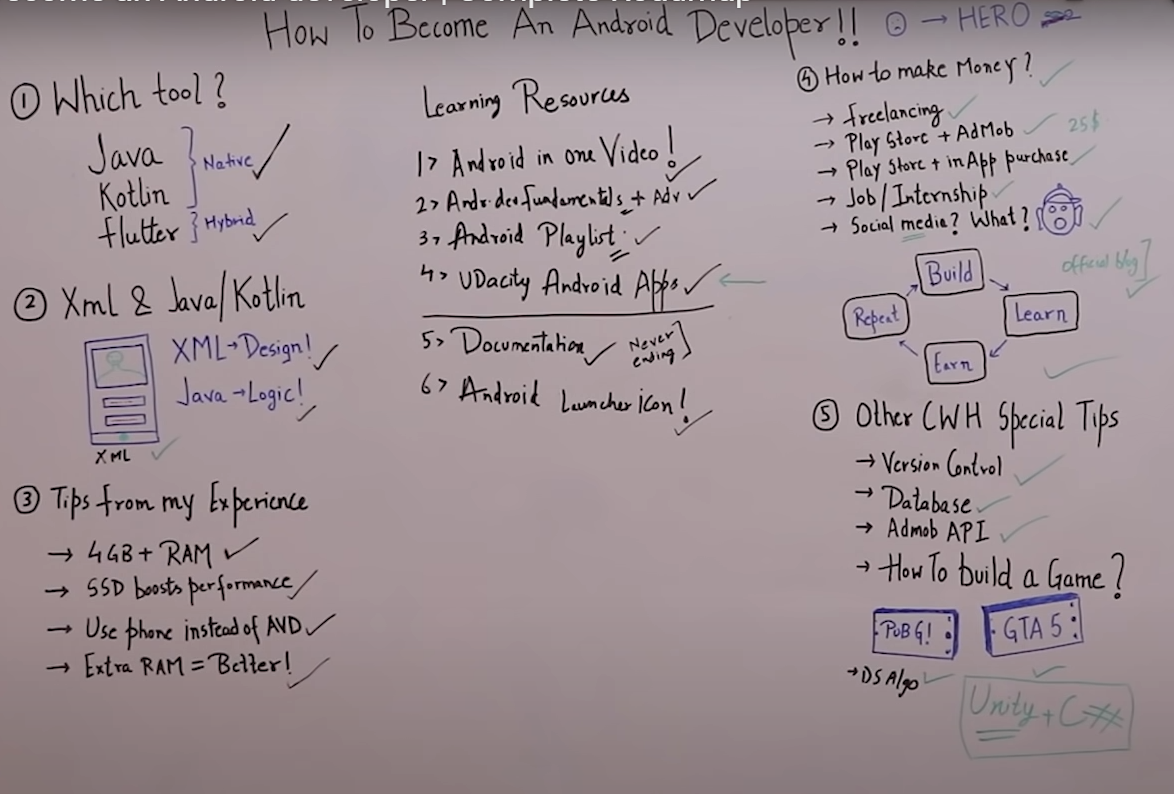 How To Become An Android Developer!! → HERO
① Which tool?
Java
Kotlin
Native
Flutter
Hybrid
② Xml & Java/Kotlin
XML→Design!
Java→Logic!
XML
③ Tips from my Experience
→ 4GB + RAM
→ SSD boosts performance
→ Use phone instead of AVD
→ Extra RAM = Better!
Learning Resources
1> Android in one Video!
2> Andr. dev. fundamentals + Adv
3> Android Playlist
4> UDacity Android Apps
5> Documentation
Never
ending
6> Android Launcher icon!
④ How to make Money?
→ Freelancing
→ Play Store + AdMob 25$
→ Play Store + in App purchase
→ Job/Internship
→ Social media? What?
official blog
Build
Learn
Earn
Repeat
⑤ Other CWH Special Tips
→ Version Control
→ Database
→ Admob API
→ How To build a Game?
PUBG!
GTA 5
→ DS Algo
Unity + C#